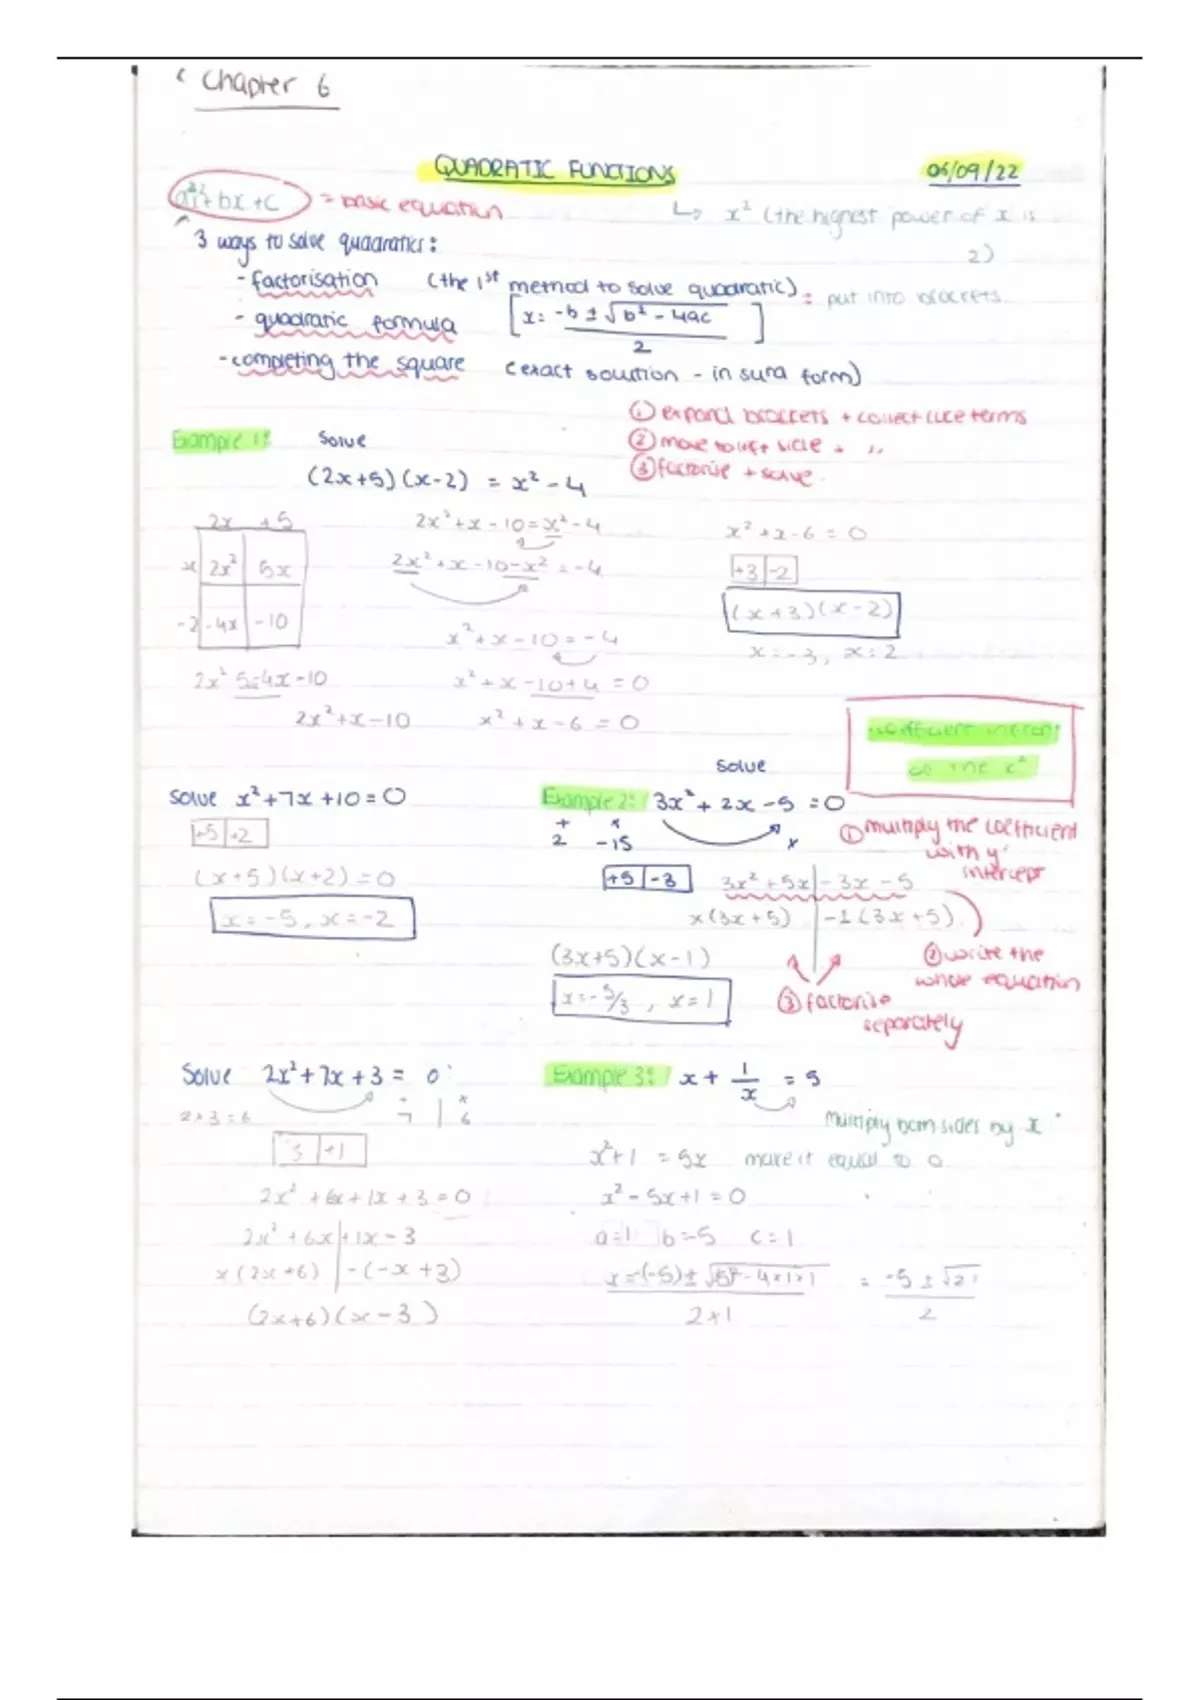 Chapter 6
QUADRATIC FUNCTIONS 06/09/22
ax²+bx+c = basic equation
↳ x² (the highest power of x is 2)
3 ways to solve quadratics:
- factorisation (the 1st method to solve quadratic) = put into brackets
- quadratic formula [x = -b ± √b² - 4ac / 2]
- completing the square (exact solution - in surd form)
① expand brackets + collect like terms
② move to left side + ,,
③ factorise + solve
Example 1: Solve
(2x+5)(x-2) = x² - 4
2x +5
x 2x² 5x
-2 -4x -10
2x² 5x-4x-10
2x²+x-10
2x²+x-10=x²-4
2x²+x-10-x²=-4
x²+x-10=-4
x²+x-10+4=0
x²+x-6=0
x²+x-6=0
+3 -2
(x+3)(x-2)
x=-3, x=2
coefficient infront
of the x²
Solve x²+7x+10=0
+5 +2
(x+5)(x+2)=0
x=-5, x=-2
Solve
Example 2: 3x²+2x-5=0
+ x
2 -15
x
+5 -3
3x²+5x|-3x-5
x(3x+5) | -1(3x+5)
(3x+5)(x-1)
x=-5/3, x=1
① multiply the coefficient
with y intercept
② write the
whole equation
③ factorise
separately
Solve 2x²+7x+3=0
2×3=6
+ x
7 | 6
3 +1
2x²+6x+1x+3=0
2x²+6x|+1x-3
x(2x+6) | -(-x+3)
(2x+6)(x-3)
Example 3: x + 1/x = 5
multiply both sides by x
x²+1=5x make it equal to 0
x²-5x+1=0
a=1 b=-5 c=1
x=-(-5)±√5²-4×1×1 / 2×1 = -5±√21 / 2